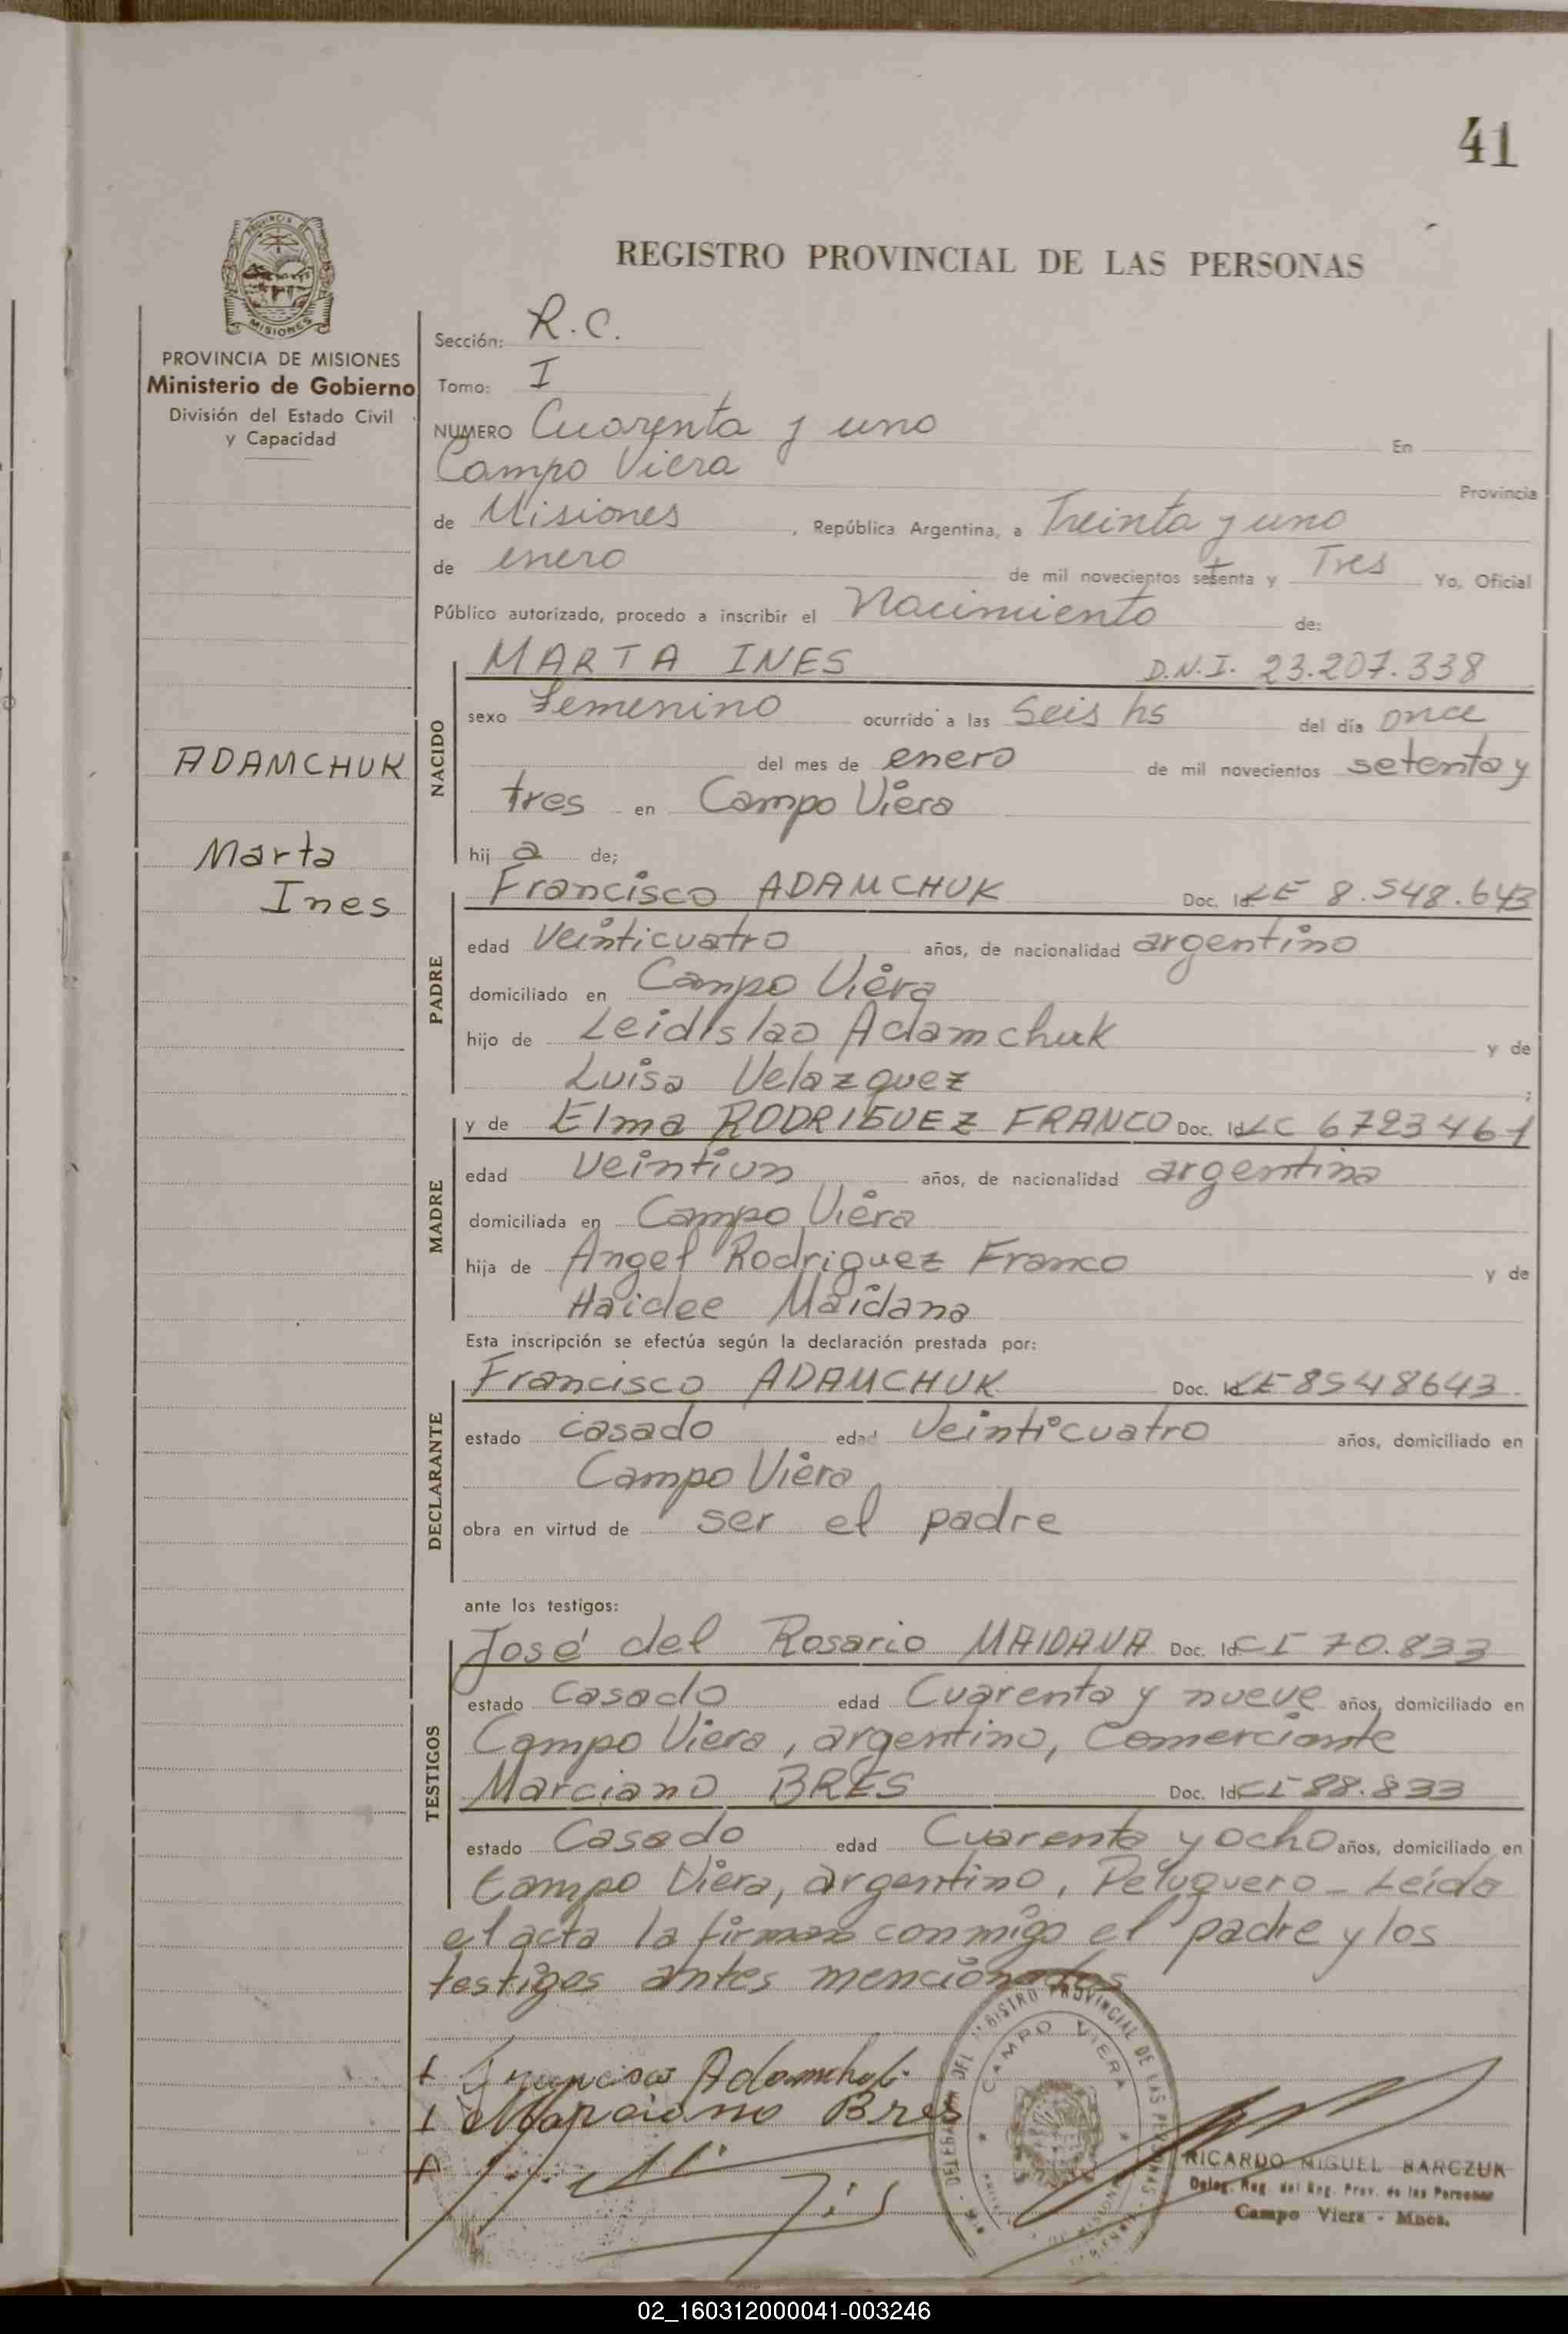 41
PROVINCIA DE
MISIONES
PROVINCIA DE MISIONES
Ministerio de Gobierno
División del Estado Civil
y Capacidad
ADAMCHUK
Marta
Ines
REGISTRO PROVINCIAL DE LAS PERSONAS
Sección: R.C.
Tomo: I
NUMERO Cuarenta y uno En
Campo Viera Provincia
de Misiones, República Argentina, a Treinta y uno
de enero de mil novecientos setenta y Tres Yo, Oficial
Público autorizado, procedo a inscribir el Nacimiento de:
NACIDO
MARTA INES D.N.I. 23.207.338
sexo Femenino ocurrido a las Seis hs del día once
del mes de enero de mil novecientos setenta y
tres en Campo Viera
hij a de;
PADRE
Francisco ADAMCHUK Doc. Id. LE 8.548.643
edad Veinticuatro años, de nacionalidad argentino
domiciliado en Campo Viera
hijo de Leidislao Adamchuk y de
Luisa Velazquez ;
MADRE
y de Elma RODRIGUEZ FRANCO Doc. Id. LC 6723461
edad Veintiun años, de nacionalidad argentina
domiciliada en Campo Viera
hija de Angel Rodriguez Franco y de
Haidee Maidana
Esta inscripción se efectúa según la declaración prestada por:
DECLARANTE
Francisco ADAMCHUK Doc. Id. LE 8548643
estado casado edad Veinticuatro años, domiciliado en
Campo Viera
obra en virtud de ser el padre
ante los testigos:
TESTIGOS
José del Rosario MAIDANA Doc. Id. CI 70.833
estado Casado edad Cuarenta y nueve años, domiciliado en
Campo Viera, argentino, Comerciante
Marciano BRES Doc. Id. CI 88.833
estado Casado edad Cuarenta y ocho años, domiciliado en
Campo Viera, argentino, Peluquero - Leída
el acta la firman conmigo el padre y los
testigos antes mencionados
Francisco Adamchuk
Marciano Bres
DELEGACION DEL REGISTRO PROVINCIAL DE LAS PERSONAS
CAMPO VIERA
RICARDO MIGUEL BARCZUK
Deleg. Reg. del Reg. Prov. de las Personas
Campo Viera - Mnes.
02_160312000041-003246